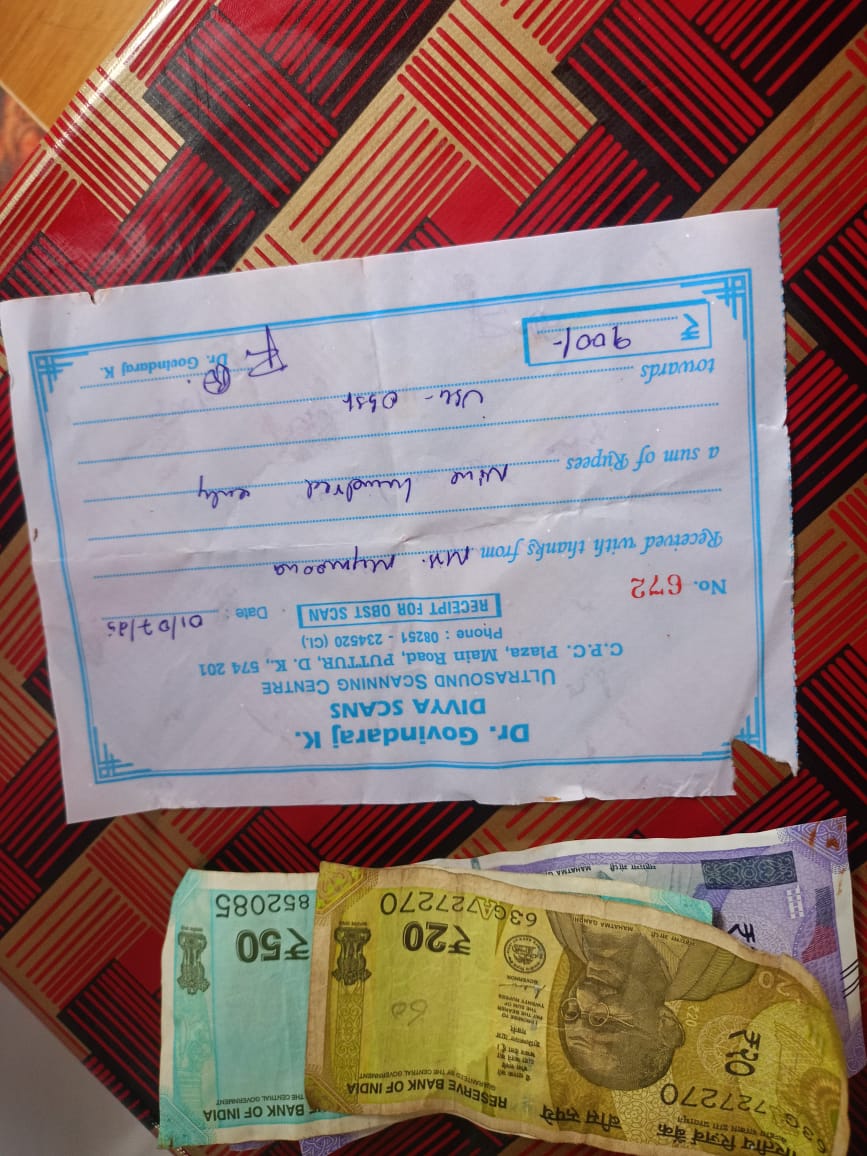 Dr. Govindaraj K.
DIVYA SCANS
ULTRASOUND SCANNING CENTRE
C.P.C. Plaza, Main Road, PUTTUR, D. K., 574 201
Phone : 08251 - 234520 (Cl.)
RECEIPT FOR OBST SCAN
No. 672
Date : 01/07/25
Received with thanks from Mrs.
a sum of Rupees Nine hundred only
towards USG - Obst
₹ 900/-
Dr. Govindaraj K.
₹50
852085
BANK OF INDIA
THE CENTRAL GOVERNMENT
भारतीय रिज़र्व बैंक
बीस रुपये
RESERVE BANK OF INDIA
GUARANTEED BY THE CENTRAL GOVERNMENT
I PROMISE TO
PAY THE BEARER
THE SUM OF
TWENTY RUPEES
GOVERNOR
₹20
₹20
20
63GA 727270
727270
महात्मा गांधी MAHATMA GANDHI
MAHATMA